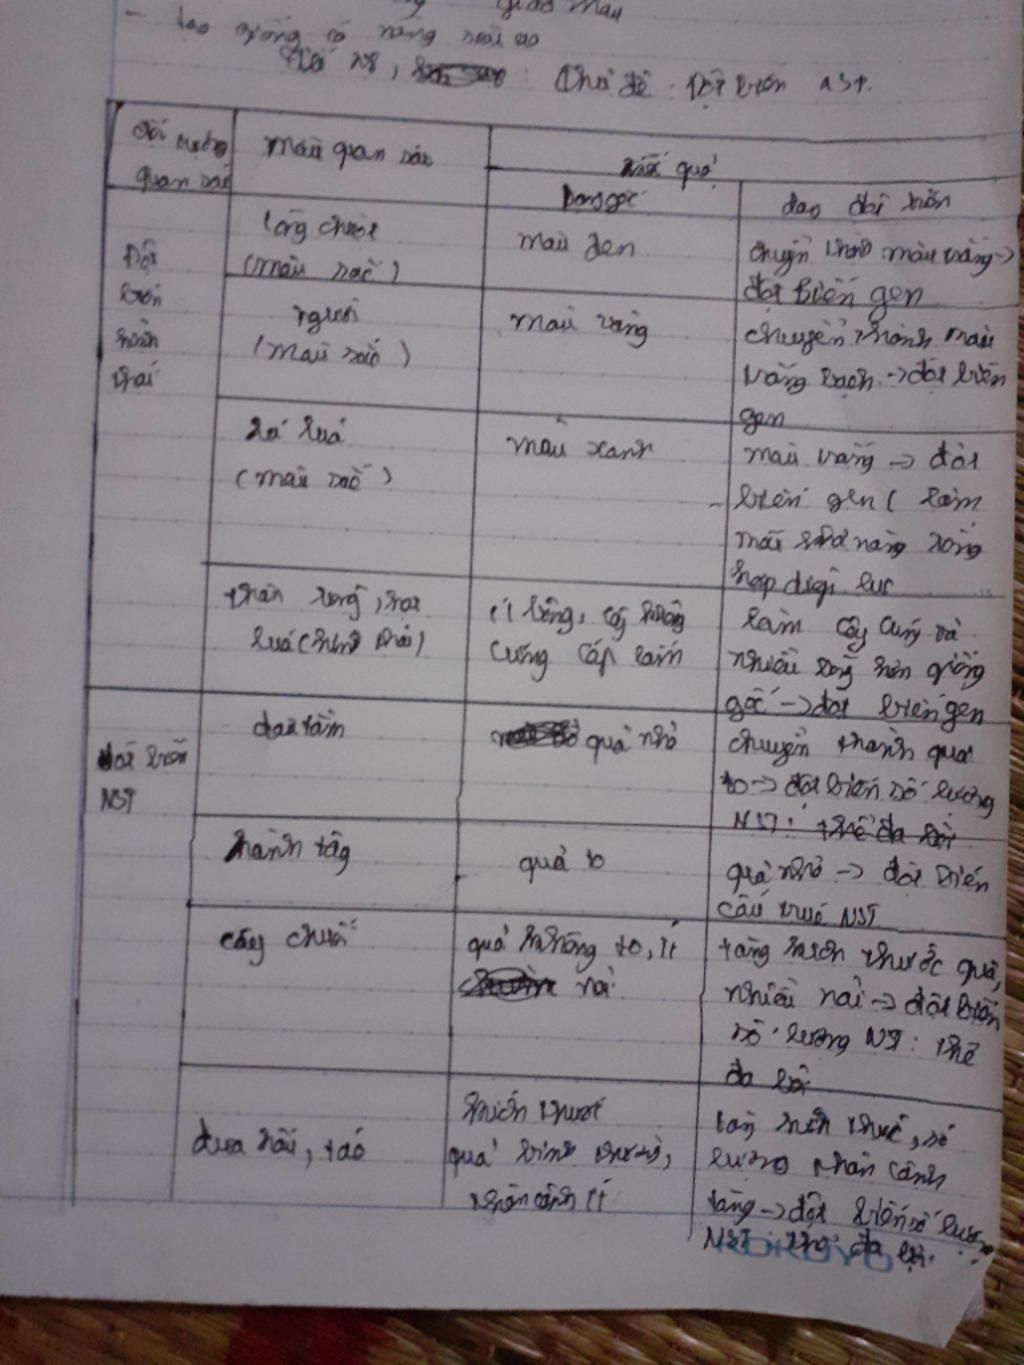 giao mau
- tạo giống có năng suất cao
Tiết 28, Chủ đề: Đột biến NST.
đối tượng
quan sát
Mẫu quan sát
Kết quả
Dạng gốc
dạng đột biến
Đột
biến
hình
thái
lông chuột
(màu sắc)
màu đen
chuyển thành màu trắng ->
đột biến gen
người
(màu sắc)
màu vàng
chuyển thành màu
trắng bạch -> đột biến
gen
Lá lúa
(màu sắc)
màu xanh
màu trắng -> đột
biến gen ( làm
mất khả năng tổng
hợp diệp lục
thân, bông, hạt
lúa (hình thái)
ít bông, cây không
cứng cáp lắm
làm cây cứng và
nhiều bông hơn giống
gốc -> đột biến gen
đột biến
NST
dâu tằm
quả nhỏ
chuyển thành quả
to -> đột biến số lượng
NST: thể đa bội
hành tây
quả to
quả nhỏ -> đột biến
cấu trúc NST
cây chuối
quả không to, ít
nải
tăng kích thước quả,
nhiều nải -> đột biến
số lượng NST: thể
đa bội
dưa hấu, táo
kích thước
quả bình thường,
ít
tăng kích thước, số
lượng
tăng -> đột biến số lượng
NST: thể đa bội
KOKUYO